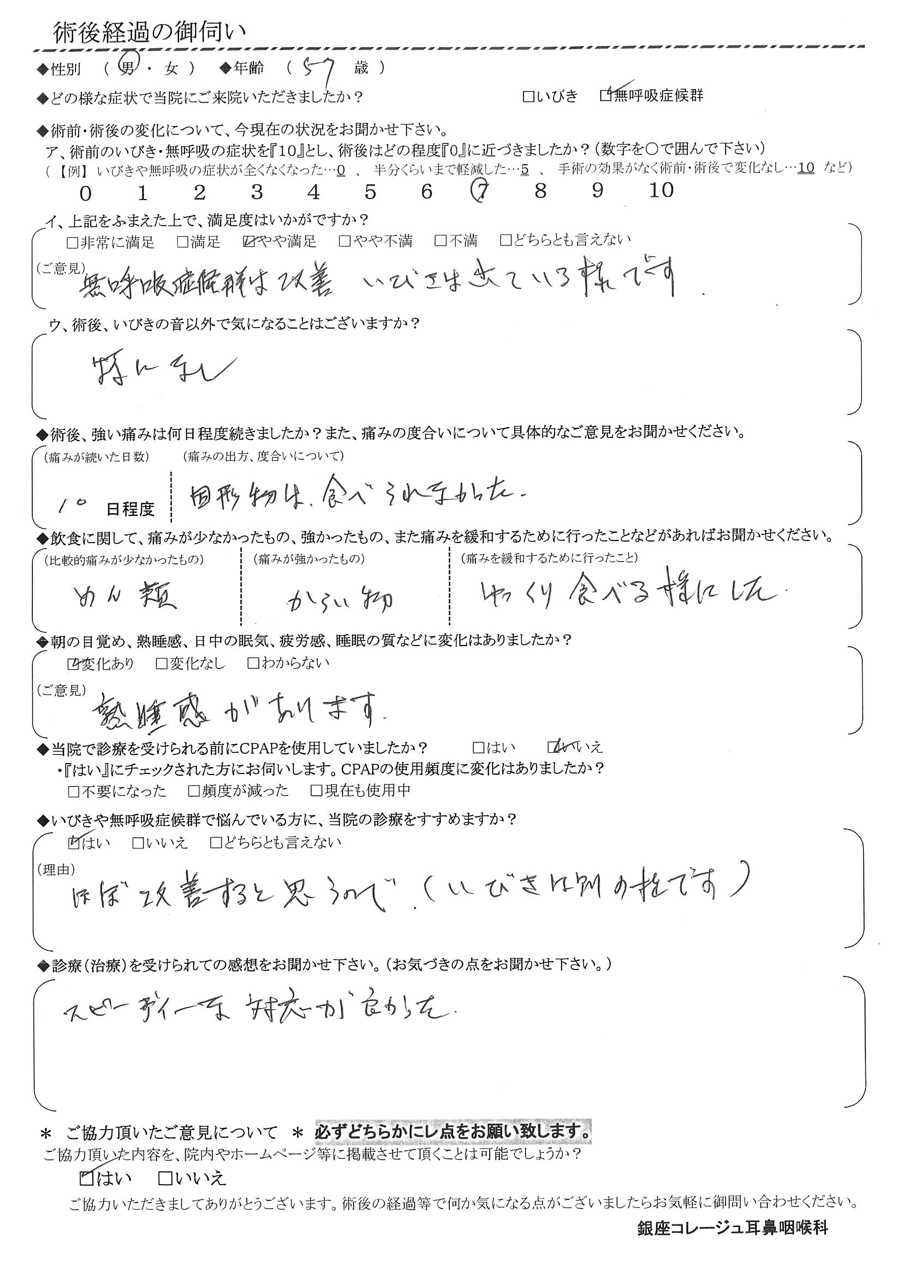 術後経過の御伺い
◆性別 （ 男 ・ 女 ） ◆年齢 （ 57 歳 ）
◆どの様な症状で当院にご来院いただきましたか？ □いびき ☑無呼吸症候群
◆術前・術後の変化について、今現在の状況をお聞かせ下さい。
ア、術前のいびき・無呼吸の症状を『10』とし、術後はどの程度『0』に近づきましたか？（数字を○で囲んで下さい）
（ 【例】 いびきや無呼吸の症状が全くなくなった…0 、 半分くらいまで軽減した…5 、 手術の効果がなく術前・術後で変化なし…10 など）
0 1 2 3 4 5 6 7 8 9 10
イ、上記をふまえた上で、満足度はいかがですか？
□非常に満足 □満足 ☑やや満足 □やや不満 □不満 □どちらとも言えない
（ご意見） 無呼吸症候群は改善 いびきは出ている様です.
ウ、術後、いびきの音以外で気になることはございますか？
特になし
◆術後、強い痛みは何日程度続きましたか？また、痛みの度合いについて具体的なご意見をお聞かせください。
（痛みが続いた日数） （痛みの出方、度合いについて）
10 日程度 固形物は、食べられなかった.
◆飲食に関して、痛みが少なかったもの、強かったもの、また痛みを緩和するために行ったことなどがあればお聞かせください。
（比較的痛みが少なかったもの） （痛みが強かったもの） （痛みを緩和するために行ったこと）
めん類 からい物 ゆっくり食べる様にした.
◆朝の目覚め、熟睡感、日中の眠気、疲労感、睡眠の質などに変化はありましたか？
☑変化あり □変化なし □わからない
（ご意見）
熟睡感があります.
◆当院で診療を受けられる前にCPAPを使用していましたか？ □はい ☑いいえ
・『はい』にチェックされた方にお伺いします。CPAPの使用頻度に変化はありましたか？
□不要になった □頻度が減った □現在も使用中
◆いびきや無呼吸症候群で悩んでいる方に、当院の診療をすすめますか？
☑はい □いいえ □どちらとも言えない
（理由）
ほぼ改善すると思うので.（いびきは別の様です）
◆診療（治療）を受けられての感想をお聞かせ下さい。（お気づきの点をお聞かせ下さい。）
スピーディーな対応が良かった.
＊ ご協力頂いたご意見について ＊ 必ずどちらかにレ点をお願い致します。
ご協力頂いた内容を、院内やホームページ等に掲載させて頂くことは可能でしょうか？
☑はい □いいえ
ご協力いただきましてありがとうございます。術後の経過等で何か気になる点がございましたらお気軽に御問い合わせください。
銀座コレージュ耳鼻咽喉科